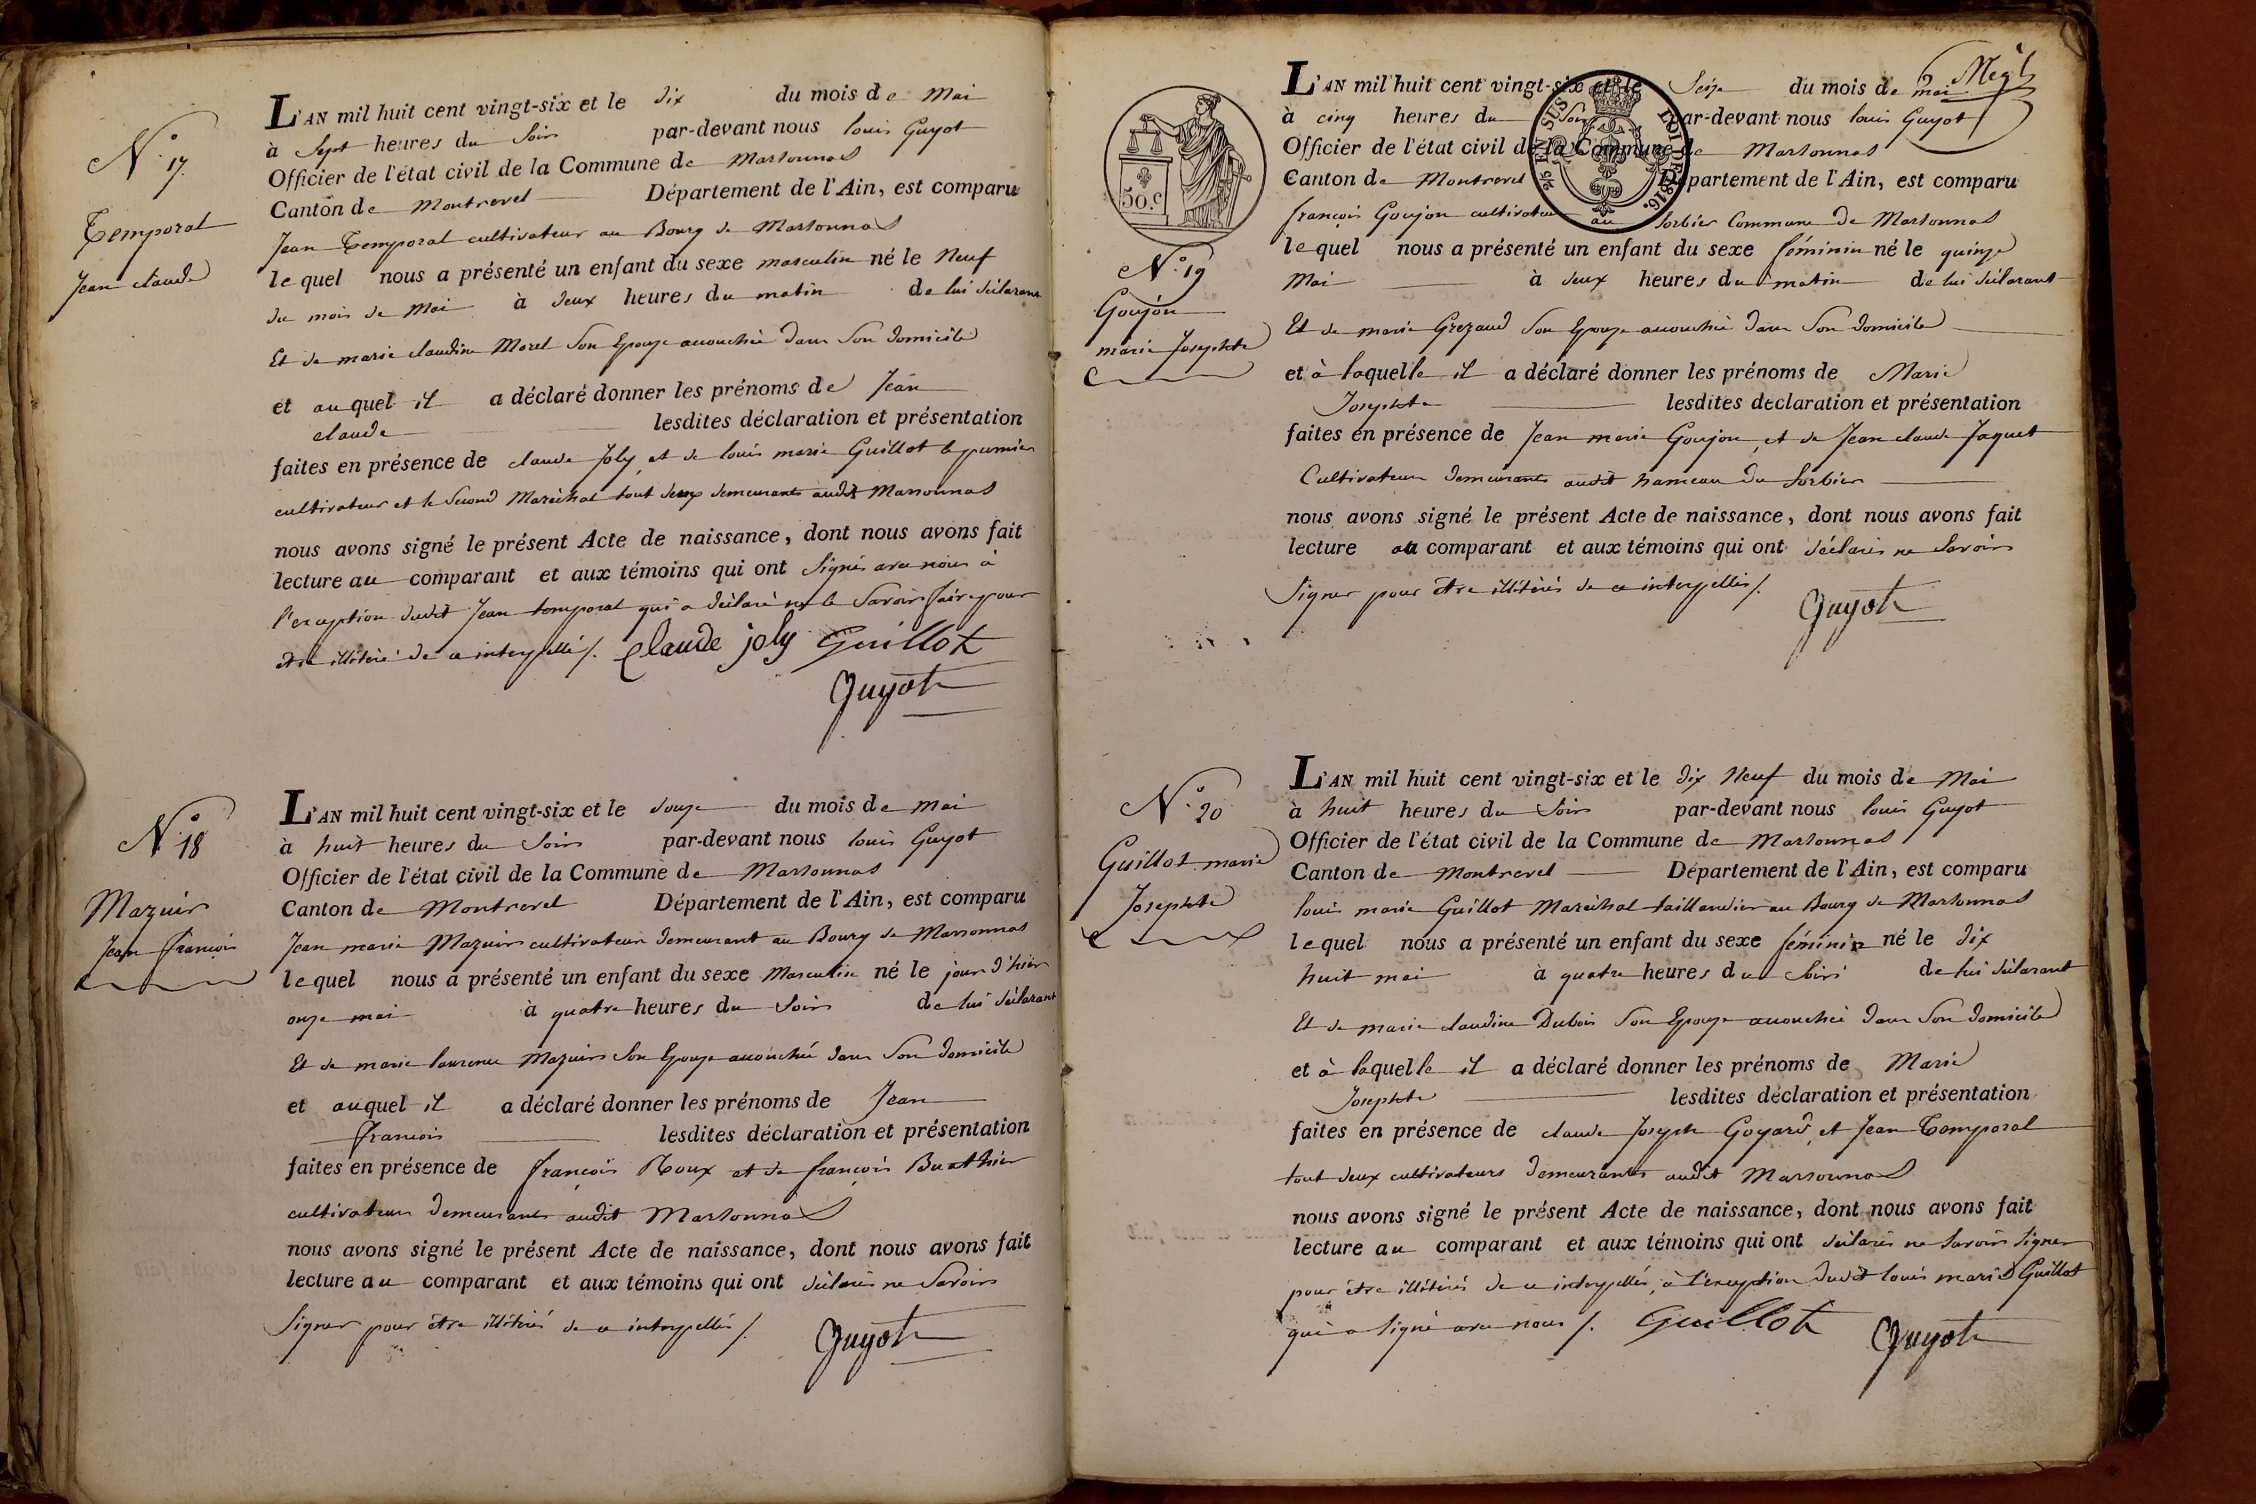 N.º 17.
Temporal
Jean claude
L'AN mil huit cent vingt-six et le dix du mois de Mai
à Sept heures du Soir par-devant nous louis Guyot
Officier de l'état civil de la Commune de Marsonnas
Canton de Montrevel Département de l'Ain, est comparu
Jean Temporal cultivateur au Bourg de Marsonnas
lequel nous a présenté un enfant du sexe masculin né le Neuf
du mois de Mai à deux heures du matin de lui déclarant
Et de marie claudine Morel Son Epouse accouchée dans Son domicile
et auquel il a déclaré donner les prénoms de Jean
claude lesdites déclaration et présentation
faites en présence de claude Joly, et de louis marie Guillot le premier
cultivateur et le Second Maréchal tout deux demeurants audit Marsonnas
nous avons signé le présent Acte de naissance, dont nous avons fait
lecture au comparant et aux témoins qui ont Signés avec nous à
l'exception dudit Jean temporal qui a déclaré ne le Savoir faire pour
etre illitéré de ce interpellé /. Claude joly Guillot
Guyot
N.º 18
Mazuir
Jean françois
L'AN mil huit cent vingt-six et le douze du mois de mai
à huit heures du Soir par-devant nous louis Guyot
Officier de l'état civil de la Commune de Marsonnas
Canton de Montrevel Département de l'Ain, est comparu
Jean marie Mazuir cultivateur demeurant au Bourg de Marsonnas
lequel nous a présenté un enfant du sexe Masculin né le jour d'hier
onze mai à quatre heures du Soir de lui déclarant
Et de marie laurence Mazuir Son Epouse accouchée dans Son domicile
et auquel il a déclaré donner les prénoms de Jean
françois lesdites déclaration et présentation
faites en présence de françois Roux et de françois Buathier
cultivateurs demeurants audit Marsonnas
nous avons signé le présent Acte de naissance, dont nous avons fait
lecture au comparant et aux témoins qui ont déclarés ne Savoir
Signer pour être illitérés de ce interpellés /. Guyot
50.c
2/5 EN SUS LOI DE 1816.
N.º 19
Goujon
marie Josephte
L'AN mil huit cent vingt-six et le Seize du mois de mai
à cinq heures du Soir par-devant nous louis Guyot
Officier de l'état civil de la Commune de Marsonnas
Canton de Montrevel Département de l'Ain, est comparu
françois Goujon cultivateur au Sorbier Commune de Marsonnas
lequel nous a présenté un enfant du sexe féminin né le quinze
Mai à deux heures du matin de lui déclarant
Et de marie Grezaud Son Epouse accouchée dans Son domicile
et à laquelle il a déclaré donner les prénoms de Marie
Josephte lesdites déclaration et présentation
faites en présence de Jean marie Goujon, et de Jean claude Jaquet
Cultivateurs demeurants audit hameau du Sorbier
nous avons signé le présent Acte de naissance, dont nous avons fait
lecture au comparant et aux témoins qui ont déclarés ne Savoir
Signer pour être illitérés de ce interpellés /.
Guyot
N.º 20
Guillot marie
Josephte
L'AN mil huit cent vingt-six et le dix Neuf du mois de Mai
à huit heures du Soir par-devant nous louis Guyot
Officier de l'état civil de la Commune de Marsonnas
Canton de Montrevel Département de l'Ain, est comparu
louis marie Guillot Maréchal taillandier au Bourg de Marsonnas
lequel nous a présenté un enfant du sexe féminin né le dix
huit mai à quatre heures du Soir de lui déclarant
Et de marie claudine Dubois Son Epouse accouchée dans Son domicile
et à laquelle il a déclaré donner les prénoms de Marie
Josephte lesdites déclaration et présentation
faites en présence de claude Joseph Goyard, et Jean Temporal
tout deux cultivateurs demeurants audit Marsonnas
nous avons signé le présent Acte de naissance, dont nous avons fait
lecture au comparant et aux témoins qui ont déclarés ne Savoir Signer
pour être illitérés de ce interpellés, à l'exception dudit louis marie Guillot
qui a Signé avec nous /. Guillot Guyot